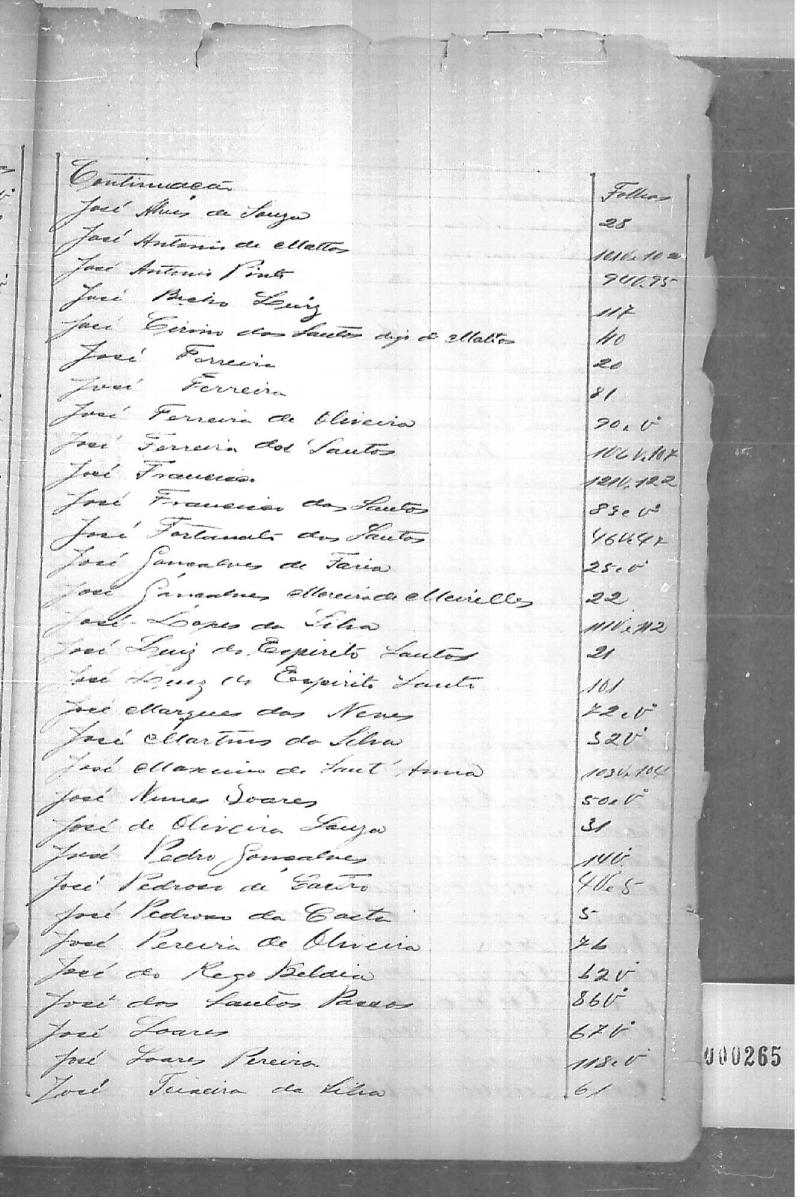 Continuação Folhas
José Alves de Souza 28
José Antonio de Mattos 101V. e 102
José Antonio Pinto 94V. 95
José Luiz 117
José Cirino dos Santos digo de Mattos 40
José Ferreira 20
José Ferreira 81
José Ferreira de Oliveira 70 e Vº
José Ferreira dos Santos 106V. e 107
José Francisco 121V. 122
José Francisco dos Santos 83 e Vº
José Fortunato dos Santos 46V. e 47
José Gonçalves de Faria 25 e Vº
José Gonçalves Moreira de Meirelles 22
José Lopes da Silva 111V. e 112
José Luiz do Espirito Santos 21
José Luiz do Espirito Santo 101
José Marques das Neves 72 e Vº
José Martins da Silva 32Vº
José Maximo de Sant'Anna 103V. e 104
José Nunes Soares 50 e Vº
José de Oliveira Souza 31
José Pedro Gonsalves 14V.
José Pedroso de 4V. e 5
José Pedroso da Costa 5
José Pereira de Oliveira 76
José do Rego Beldia 62Vº
José dos Santos Passos 86Vº
José Soares 67Vº
José Soares Pereira 118 e Vº
José Teixeira da Silva 61
000265